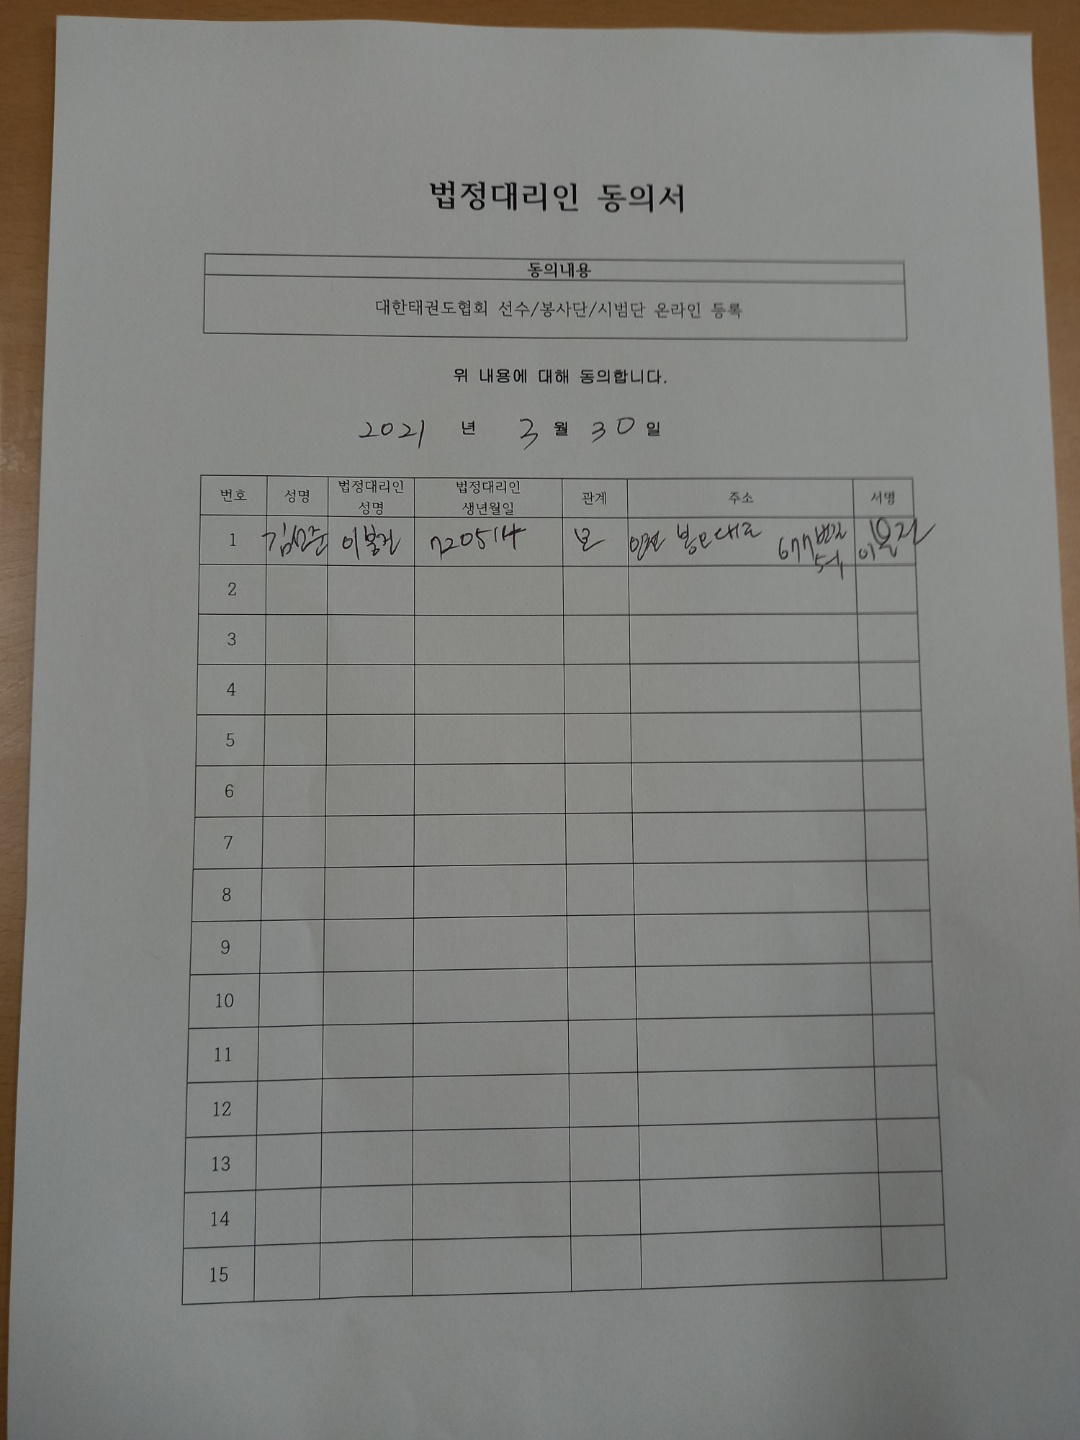 법정대리인 동의서
동의내용
대한태권도협회 선수/봉사단/시범단 온라인 등록
위 내용에 대해 동의합니다.
2021 년 3 월 30 일
번호 성명 법정대리인 성명 법정대리인 생년월일 관계 주소 서명
1 720514 모 677번길
2
3
4
5
6
7
8
9
10
11
12
13
14
15